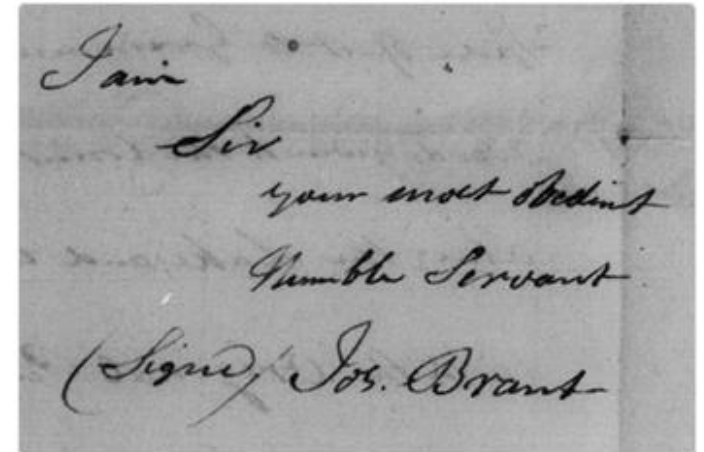 I am
Sir
your most obedient
Humble Servant
(Signed) Jos. Brant